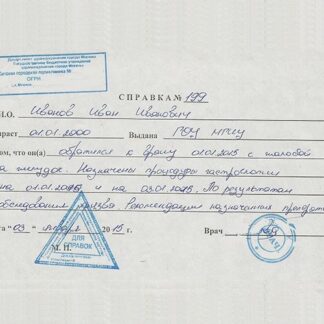 Департамент здравоохранения города Москвы
Государственное бюджетное учреждение
здравоохранения города Москвы
городская поликлиника №
ОГРН
г. Москва
СПРАВКА № 199
И.О. Иванов Иван Иванович
раст 01.01.2000 Выдана РОУ
ом, что он(а) обратился к врачу 01.01.2015 с жалобой
на желудок. Назначены процедуры гастроскопии
на 01.01.2015 и на 03.01.2015. По результатам
обследования язва. Рекомендации назначенных
та "03" января 2015 г. Врач
М. П.
ДЛЯ
СПРАВОК
ВРАЧ